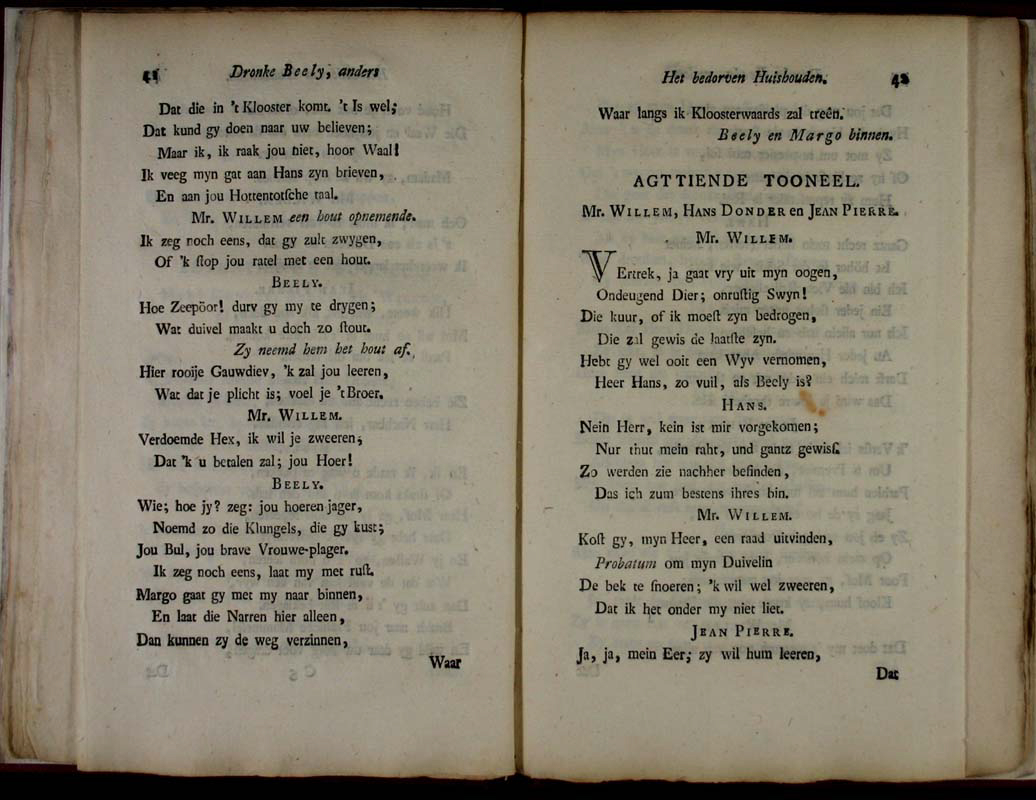 41 Dronke Beely, anders
Dat die in 't Klooster komt. 't Is wel;
Dat kund gy doen naar uw believen;
Maar ik, ik raak jou niet, hoor Waal!
Ik veeg myn gat aan Hans zyn brieven,
En aan jou Hottentotſche taal.
Mr. WILLEM een hout opnemende.
Ik zeg noch eens, dat gy zult zwygen,
Of 'k ſtop jou ratel met een hout.
BEELY.
Hoe Zeepöor! durv gy my te drygen;
Wat duivel maakt u doch zo ſtout.
Zy neemd hem het hout af.
Hier rooije Gauwdiev, 'k zal jou leeren,
Wat dat je plicht is; voel je 't Broer.
Mr. WILLEM.
Verdoemde Hex, ik wil je zweeren;
Dat 'k u betalen zal; jou Hoer!
BEELY.
Wie; hoe jy? zeg: jou hoeren jager,
Noemd zo die Klungels, die gy kust;
Jou Bul, jou brave Vrouwe-plager.
Ik zeg noch eens, laat my met ruſt.
Margo gaat gy met my naar binnen,
En laat die Narren hier alleen,
Dan kunnen zy de weg verzinnen,
Waar
Het bedorven Huishouden. 42
Waar langs ik Kloosterwaards zal treên.
Beely en Margo binnen.
AGTTIENDE TOONEEL.
Mr. WILLEM, HANS DONDER en JEAN PIERRE.
Mr. WILLEM.
VErtrek, ja gaat vry uit myn oogen,
Ondeugend Dier; onruſtig Swyn!
Die kuur, of ik moeſt zyn bedrogen,
Die zal gewis de laatſte zyn.
Hebt gy wel ooit een Wyv vernomen,
Heer Hans, zo vuil, als Beely is?
HANS.
Nein Herr, kein ist mir vorgekomen;
Nur thut mein raht, und gantz gewisſ.
Zo werden zie nachher befinden,
Das ich zum bestens ihres bin.
Mr. WILLEM.
Koſt gy, myn Heer, een raad uitvinden,
Probatum om myn Duivelin
De bek te ſnoeren; 'k wil wel zweeren,
Dat ik het onder my niet liet.
JEAN PIERRE.
Ja, ja, mein Eer; zy wil hum leeren,
Dat